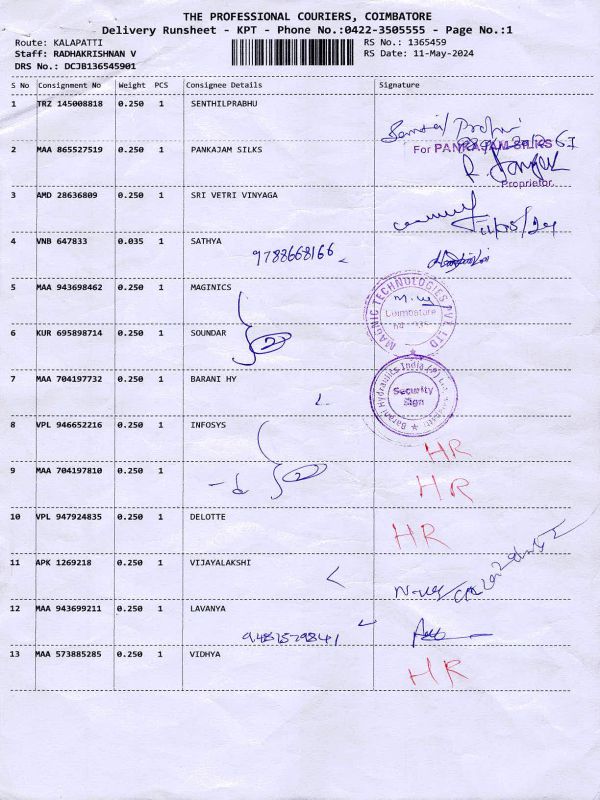 THE PROFESSIONAL COURIERS, COIMBATORE
Delivery Runsheet - KPT - Phone No.:0422-3505555 - Page No.:1
Route: KALAPATTI RS No.: 1365459
Staff: RADHAKRISHNAN V RS Date: 11-May-2024
DRS No.: DCJB136545901
S No Consignment No Weight PCS Consignee Details Signature
1 TRZ 145008818 0.250 1 SENTHILPRABHU
2 MAA 865527519 0.250 1 PANKAJAM SILKS For PANKAJAM SILKS
Proprietor.
3 AMD 28636809 0.250 1 SRI VETRI VINYAGA 11/05/24
4 VNB 647833 0.035 1 SATHYA 9788668166
5 MAA 943698462 0.250 1 MAGINICS
MAGNIC TECHNOLOGIES PVT. LTD
Coimbatore
6 KUR 695898714 0.250 1 SOUNDAR 2
7 MAA 704197732 0.250 1 BARANI HY
Barani Hydraulics India (P) Ltd
Security
Sign
8 VPL 946652216 0.250 1 INFOSYS HR
9 MAA 704197810 0.250 1 2 HR
10 VPL 947924835 0.250 1 DELOTTE HR
11 APK 1269218 0.250 1 VIJAYALAKSHI
12 MAA 943699211 0.250 1 LAVANYA
13 MAA 573885285 0.250 1 VIDHYA HR